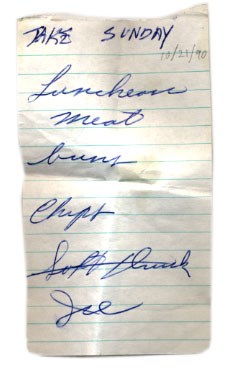 TAKE SUNDAY
10/21/90
Luncheon
meat
buns
Chips
Soft drink
Ice